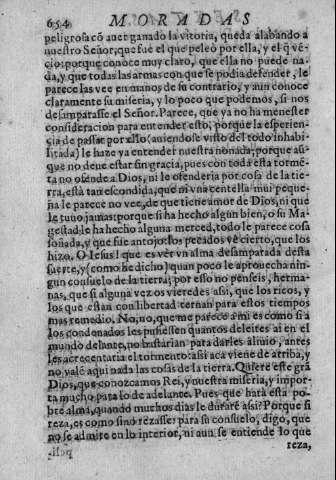 654 MORADAS
peligrosa cõ auer ganado la vitoria, queda alabando a
nuestro Señor, que fue el que peleò por ella, y el q̃ vẽ
ciò: porque conoce muy claro, que ella no puede na-
da, y que todas las armas con que se podia defender, le
parece las vee en manos de su contrario, y aun conoce
claramente su miseria, y lo poco que podemos, si nos
desamparasse el Señor. Parece, que ya no ha menester
consideracion para entender esto, porque la esperien-
cia de passar por ello (auiendose visto del todo inhabi-
litada) le haze ya entender nuestra nonada; porque aũ
que no deue estar sin gracia, pues con toda esta tormẽ
ta no ofende a Dios, ni le ofenderia por cosa de la tie-
rra, està tan escondida, que ni vna centella mui peque-
ña le parece no vee, de que tiene amor de Dios, ni que
le tuuo jamas: porque si ha hecho algun bien, o su Ma-
gestad le ha hecho alguna merced, todo le parece cosa
soñada, y que fue antojo: los pecados vè cierto, que los
hizo. O Iesus! que es ver vn alma desamparada desta
suerte, y (como he dicho) quan poco le aprouecha nin-
gun consuelo de la tierra; por esso no penseis, herma-
nas, que si alguna vez os vieredes assi, que los ricos, y
los que estan con libertad ternan para estos tiempos
mas remedio. No, no, que me parece a mi es como si a
los condenados les pusiessen quantos deleites ai en el
mundo delante, no bastarian para darles aliuio, antes
les acrecentaria el tormento: assi acà viene de arriba, y
no valẽ aqui nada las cosas de la tierra. Quiere este grã
Dios, que conozcamos Rei, y nuestra miseria, y impor-
ta mucho para lo de adelante. Pues que harà esta po-
bre alma, quando muchos dias le durare assi? Porque si
reza, es como si no rezasse: para su consuelo, digo, que
no se admite en lo interior, ni aun se entiende lo que
reza,